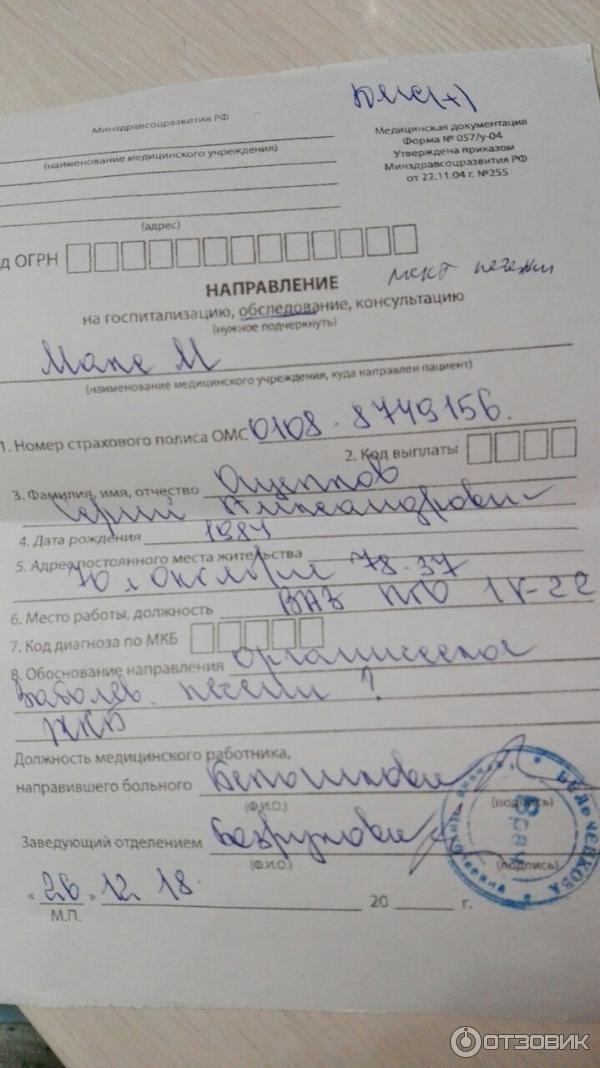 Минздравсоцразвития РФ
(наименование медицинского учреждения)
(адрес)
Медицинская документация
Форма № 057/у-04
Утверждена приказом
Минздравсоцразвития РФ
от 22.11.04 г. №255
д ОГРН
НАПРАВЛЕНИЕ
МСКТ печени
на госпитализацию, обследование, консультацию
(нужное подчеркнуть)
(наименование медицинского учреждения, куда направлен пациент)
1. Номер страхового полиса ОМС 0108. 8749156.
2. Код выплаты
3. Фамилия, имя, отчество
Сергей Александрович
4. Дата рождения 1984
5. Адрес постоянного места жительства
70 л Октября 78-37
6. Место работы, должность ВАЗ
7. Код диагноза по МКБ
8. Обоснование направления Органическое
заболев. печени ?
ЖКБ
Должность медицинского работника,
направившего больного
(Ф.И.О.)
(подпись)
Заведующий отделением
(Ф.И.О.)
(подпись)
« 26 » 12 18. 20 г.
М.П.
Врач
ОТЗОВИК